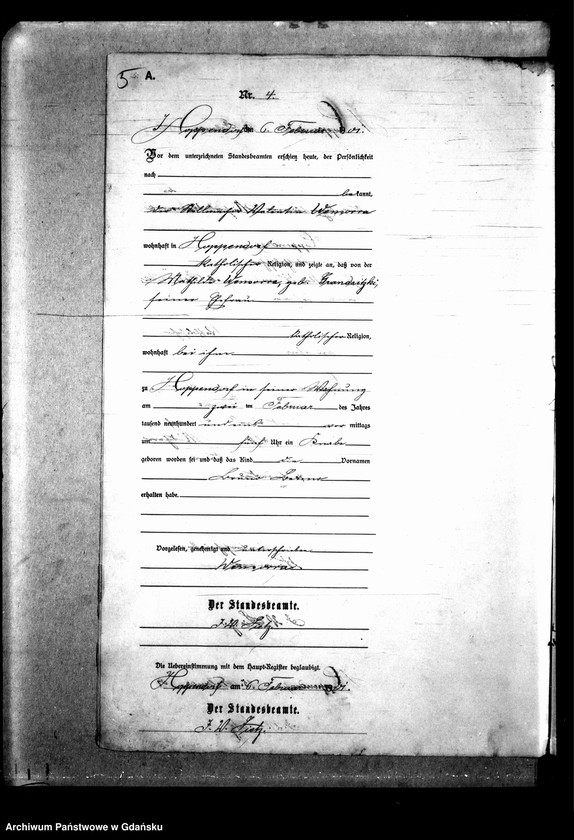 5 A.
Nr. 4.
Hoppendorf am 6. Februar 1901.
Vor dem unterzeichneten Standesbeamten erschien heute, der Persönlichkeit
nach
bekannt,
der Valentin Wenserra
wohnhaft in Hoppendorf
katholischer Religion, und zeigte an, daß von der
Mathilde geb.
seiner Ehefrau
katholischer Religion,
wohnhaft bei ihm
zu Hoppendorf in seiner Wohnung
am zwei ten Februar des Jahres
tausend neunhundert und eins vor mittags
um fünf Uhr ein Knabe
geboren worden sei und daß das Kind die Vornamen
Bruno
erhalten habe.
Vorgelesen, genehmigt und unterschrieben
Der Standesbeamte.
J. V.
Die Uebereinstimmung mit dem Haupt-Register beglaubigt.
Hoppendorf am 6. Februar 1901.
Der Standesbeamte.
J. V.
Archiwum Państwowe w Gdańsku